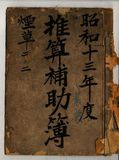 昭和十三年度
推算補助簿
煙草ニ二